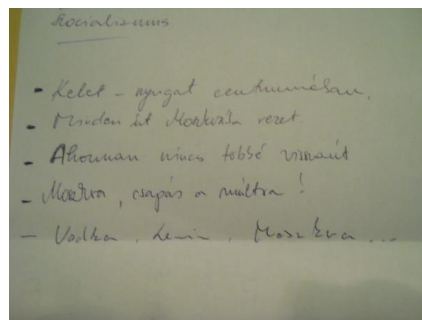 Szocializmus
- Kelet - nyugat centrumában.
- Minden út Moszkvába vezet.
- Ahonnan nincs többé visszaút
- Moszkva, csapás a múltra!
- Vodka, Lenin, Moszkva...